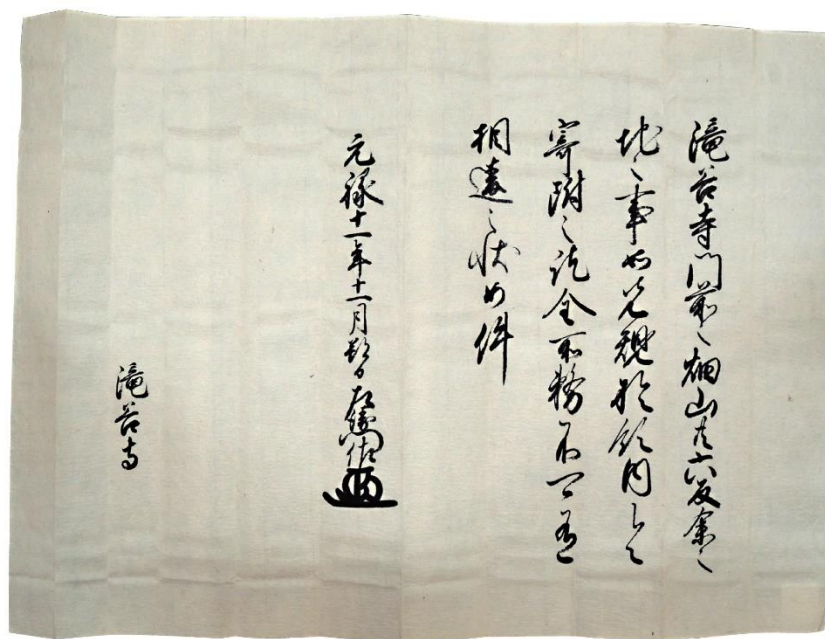 滝谷寺門前之畑山共六反余之
地之事如先規於領内令
寄附之訖全所務不可有
相違之状如件
元禄十一年十一月朔日 左衛門佐
滝谷寺